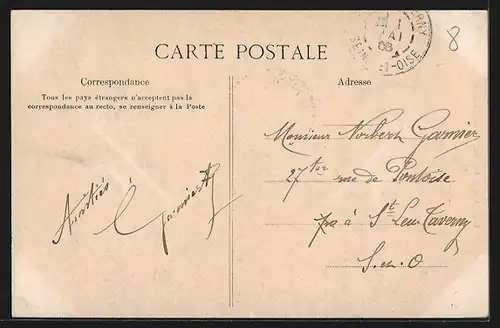 CARTE POSTALE
Correspondance
Tous les pays étrangers n'acceptent pas la
correspondance au recto, se renseigner à la Poste
Adresse
8
MAI
08
SEINE-ET-OISE
Amitiés
Monsieur Norbert Garnier
27 ter rue de Pontoise
à St Leu Taverny
S. et. O